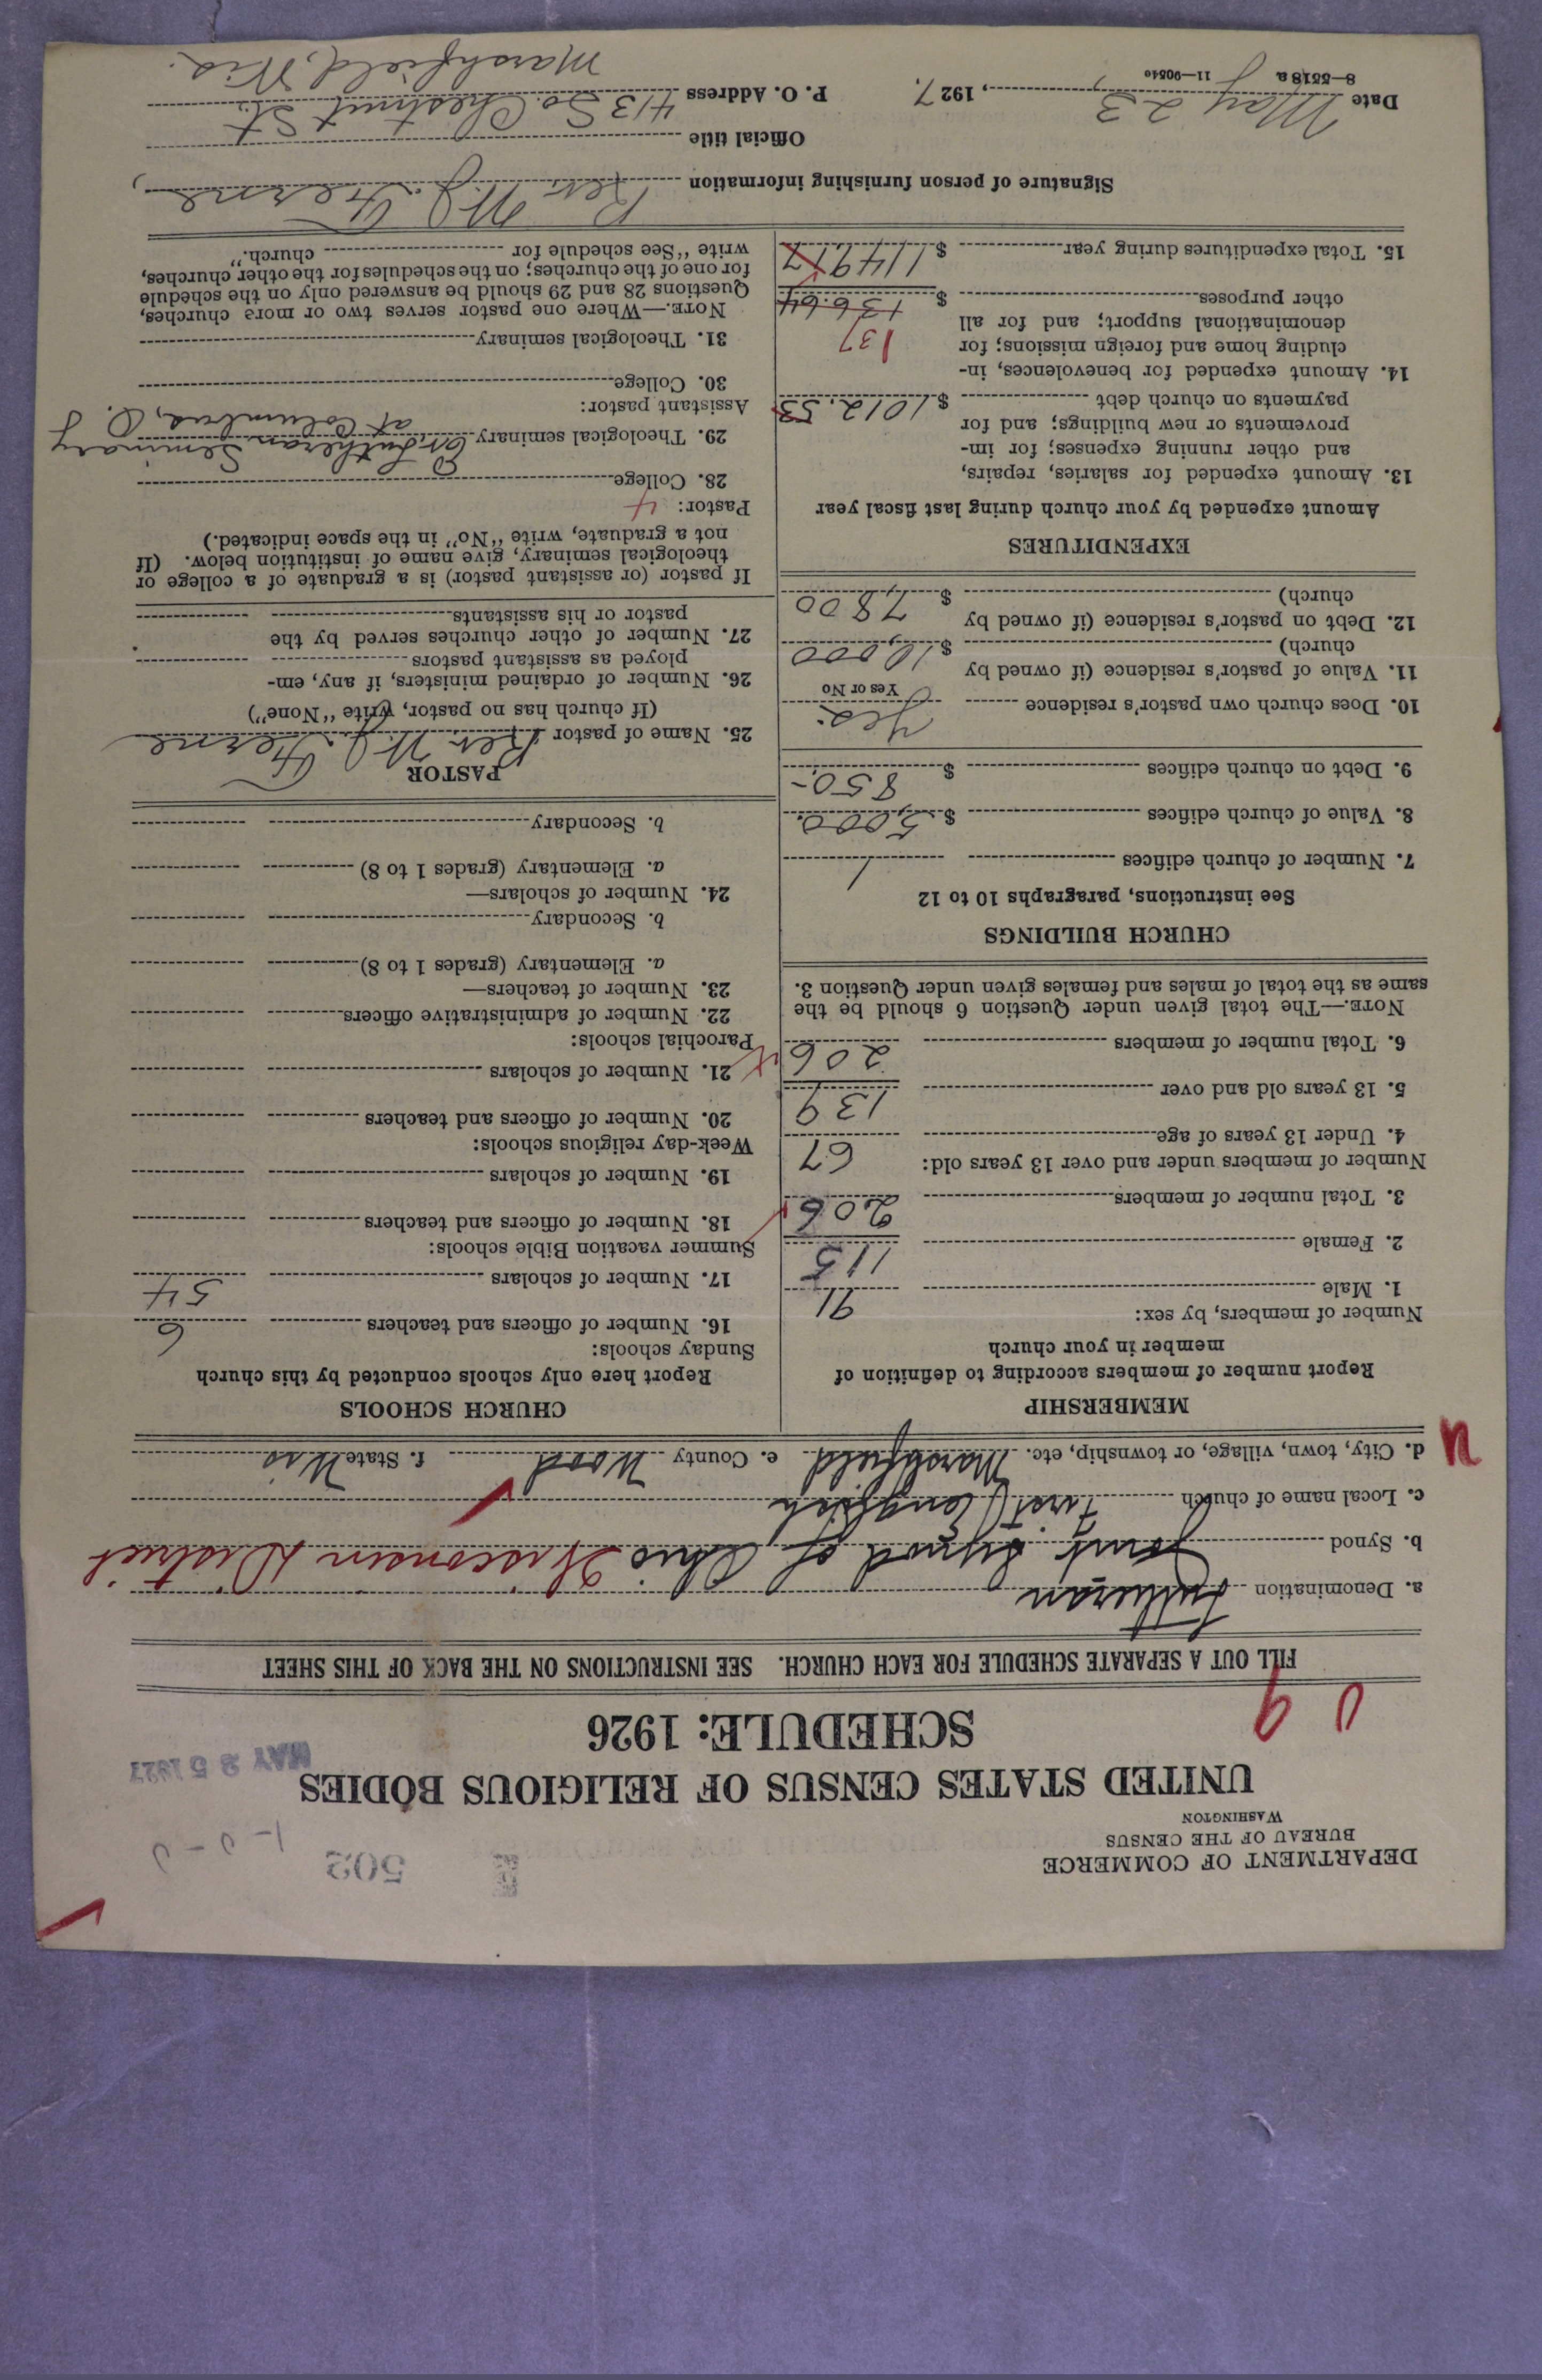 DEPARTMENT OF COMMERCE
BUREAU OF THE CENSUS
WASHINGTON
502
1-0-0
UNITED STATES CENSUS OF RELIGIOUS BODIES
SCHEDULE: 1926
MAY 25 1927
FILL OUT A SEPARATE SCHEDULE FOR EACH CHURCH. SEE INSTRUCTIONS ON THE BACK OF THIS SHEET
a. Denomination Lutheran
b. Synod Joint Synod of Ohio Wisconsin District
c. Local name of church First English
d. City, town, village, or township, etc. Marshfield e. County Wood f. State Wis
MEMBERSHIP
Report number of members according to definition of
member in your church
Number of members, by sex:
1. Male 91
2. Female 115
3. Total number of members 206
Number of members under and over 13 years old:
4. Under 13 years of age 67
5. 13 years old and over 139
6. Total number of members 206
NOTE.—The total given under Question 6 should be the
same as the total of males and females given under Question 3.
CHURCH BUILDINGS
See instructions, paragraphs 10 to 12
7. Number of church edifices 1
8. Value of church edifices $ 5,000.
9. Debt on church edifices $ 850.-
10. Does church own pastor's residence Yes.
Yes or No
11. Value of pastor's residence (if owned by
church) $ 10,000
12. Debt on pastor's residence (if owned by
church) $ 7,800
EXPENDITURES
Amount expended by your church during last fiscal year
13. Amount expended for salaries, repairs,
and other running expenses; for im-
provements or new buildings; and for
payments on church debt $ 1012.53
14. Amount expended for benevolences, in-
cluding home and foreign missions; for
denominational support; and for all
137
other purposes $ 136.64
15. Total expenditures during year $ 1149.17
CHURCH SCHOOLS
Report here only schools conducted by this church
Sunday schools:
16. Number of officers and teachers 6
17. Number of scholars 54
Summer vacation Bible schools:
18. Number of officers and teachers
19. Number of scholars
Week-day religious schools:
20. Number of officers and teachers
21. Number of scholars
Parochial schools:
22. Number of administrative officers
23. Number of teachers—
a. Elementary (grades 1 to 8)
b. Secondary
24. Number of scholars—
a. Elementary (grades 1 to 8)
b. Secondary
PASTOR
25. Name of pastor Rev. W. J.
(If church has no pastor, write "None")
26. Number of ordained ministers, if any, em-
ployed as assistant pastors
27. Number of other churches served by the
pastor or his assistants
If pastor (or assistant pastor) is a graduate of a college or
theological seminary, give name of institution below. (If
not a graduate, write "No" in the space indicated.)
Pastor: 4
28. College
29. Theological seminary Ev. Lutheran Seminary
at Columbus, O.
Assistant pastor:
30. College
31. Theological seminary
NOTE.—Where one pastor serves two or more churches,
Questions 28 and 29 should be answered only on the schedule
for one of the churches; on the schedules for the other churches,
write "See schedule for church."
Signature of person furnishing information Rev. W. J.
Official title
Date May 23, 1927. P. O. Address 413 So. Chestnut St.
Marshfield, Wis.
8—5518a 11—9054c